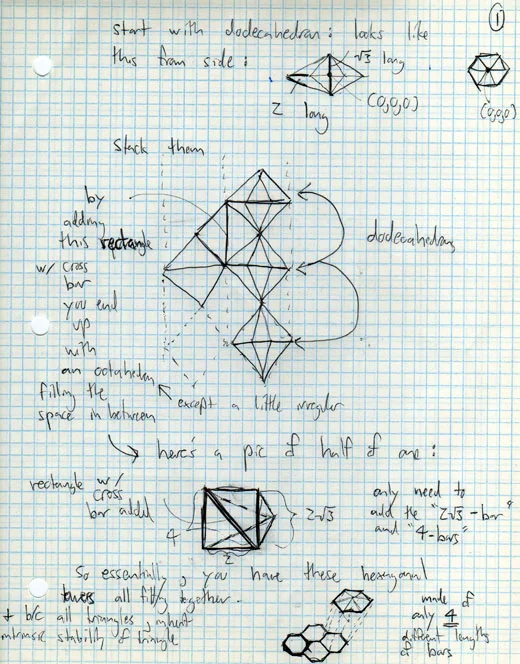 1
start with dodecahedran: looks like
this from side:
√3 long
2 long
(0,0,0)
(0,0,0)
Stack them
by
adding
this rectangle
w/ cross
bar
you end
up
with
an octahedran
filling the
space in between
dodecahedrans
except a little irregular
here's a pic of half of one:
rectangle w/
cross
bar added
4
2
2√3
only need to
add the "2√3-bar"
and "4-bars"
So essentially, you have these hexagonal
towers all fitting together.
+ b/c all triangles, inherit
intrinsic stability of triangle
made of
only 4
different lengths
of bars